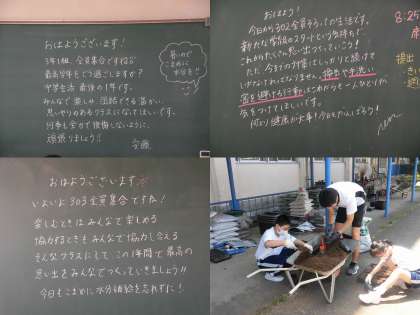 おはようございます!
3年1組、全員集合ですね!
最高学年をどう過ごしますか?
中学生活最後の1年です。
みんなで楽しみ、団結できる温かい
思いやりのあるクラスにしてほしいです。
何事も全力で後悔しないように、
頑張りましょう!!
暑いので
こまめに
水分を!!
おはよう!
今日から302全員そろっての生活です。
新たな常設のスタートという気持ちで
これからたくさん思い出つくっていこう!
ただ、今までの対策はしっかりと続けて
いかなければなりません。
密を避ける行動
気をつけてほしいです。
何より健康が大事!今日もがんばろう!
8:25
提出
おはようございます
いよいよ303全員集合ですね!
楽しむときはみんなで楽しめる
協力するときもみんなで協力し合える
そんなクラスにして この1年間で最高の
思い出をみんなでつくっていきましょう!!
今日もこまめに水分補給を忘れずに!